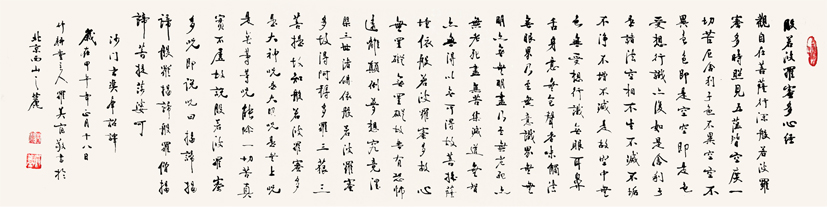 般若波羅蜜多心經
觀自在菩薩行深般若波羅
蜜多時照見五蘊皆空度一
切苦厄舍利子色不異空空不
異色色即是空空即是色
受想行識亦復如是舍利子
是諸法空相不生不滅不垢
不淨不增不減是故空中無
色無受想行識無眼耳鼻
舌身意無色聲香味觸法
無眼界乃至無意識界無無
明亦無無明盡乃至無老死亦
無老死盡無苦集滅道無智
亦無得以無所得故菩提薩
埵依般若波羅蜜多故心
無罣礙無罣礙故無有恐怖
遠離顛倒夢想究竟涅
槃三世諸佛依般若波羅蜜
多故得阿耨多羅三藐三
菩提故知般若波羅蜜多
是大神咒是大明咒是無上咒
是無等等咒能除一切苦真
實不虛故說般若波羅蜜
多咒即說咒曰揭諦揭
諦般羅揭諦般羅僧揭
諦菩提薩婆訶
沙門玄奘奉詔譯
歲在甲午年正月十八日
主人敬書於
北京西山之麓